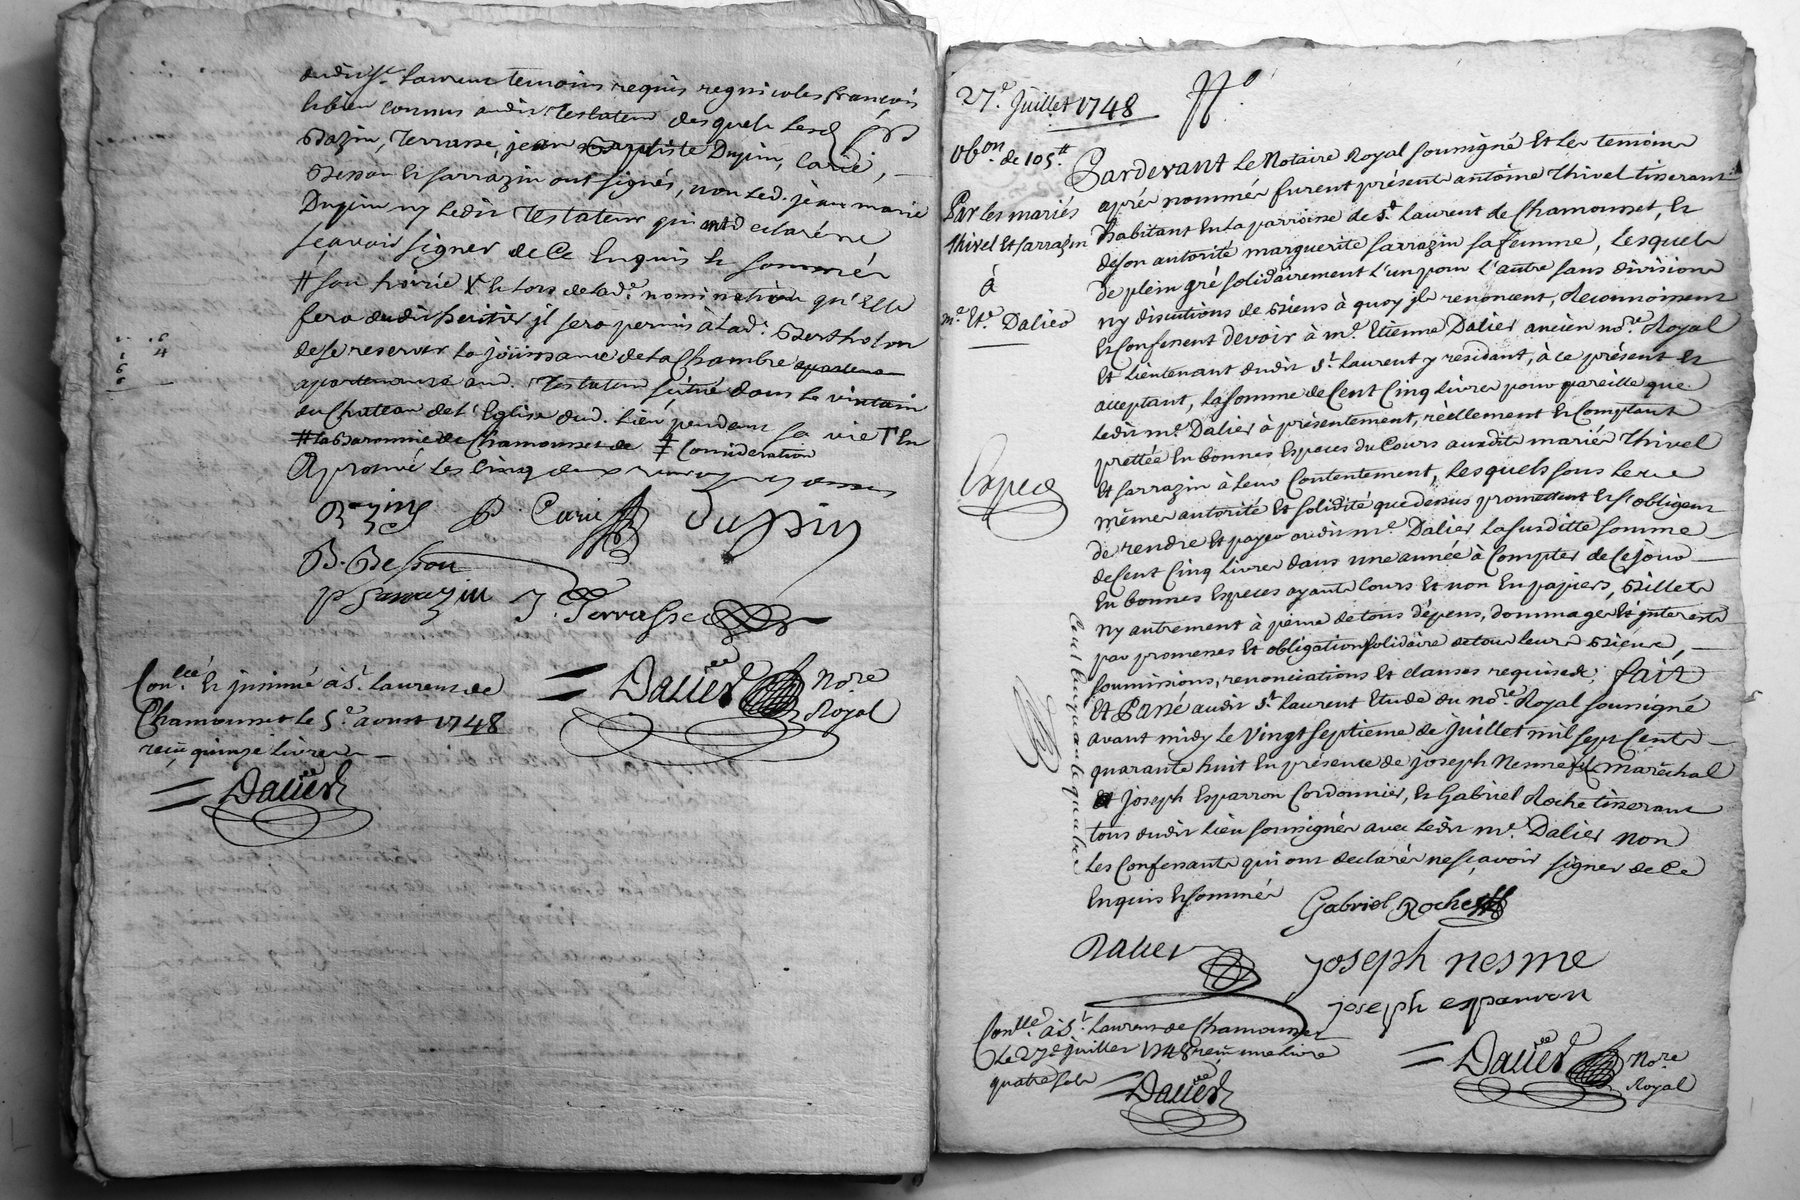 audit St Laurent temoins requis regnicoles françois
et bien connus audit Testateur desquels lesd
Bazin, Terrasse, jean Baptiste Dupin, Carié,
Besson et Sarrazin ont signés, non led. jean marie
Dupin ny ledit Testateur qui ont declaré ne
sçavoir signer de ce Enquis et sommés
# son hoirie X Et lors de lad.e nomination qu'Elle
fera dudit heritier il sera permis à lad: Bertholon
de se reserver la joüissance de la Chambre
apartenante aud. Testateur située dans le vintain
du Chateau de l'Eglise dud. lieu pendant sa vie T En
# la Baronnie de Chamousset de ‡ Consideration
Aprouvé les cinq
Bazin P. Carié Dupin
B. Besson
P Sarrazin J. Terrasse
= Dalier No.re
Royal
Con.llé Et jnsinué à St. Laurent de
Chamousset le 5.e aoust 1748
reçu quinze livres
= Dalier
27.e Juillet 1748
Obon. de 105.#
Par les mariés
Thivel Et Sarrazin
à
m.e Et.e Dalier
Pardevant Le Notaire Royal soussigné Et les temoins
aprés nommés furent présents antoine Thivel tisserant
habitant En la parroisse de St. Laurent de Chamousset, Et
de son autorité marguerite Sarrazin sa femme, Lesquels
de plein gré solidairement L'un pour L'autre sans division
ny discutions de Biens à quoy ils renoncent, Reconnoissent
Et Confessent devoir à m.e Etienne Dalier ancien no.re Royal
Et Lieutenant dudit St. Laurent y residant, à ce présent Et
acceptant, La somme de Cent Cinq Livres pour pareille que
Ledit m.e Dalier à présentement, réellement Et Comptant
prettée En bonnes Especes du Cours ausdits mariés Thivel
Et Sarrazin à leur Contentement, Lesquels sous Leur
même autorité Et solidité que dessus promettent Et s'obligent
de rendre Et payer audit m.e Dalier La susditte somme
de Cent Cinq Livres dans une année à Compter de Ce jour
En bonnes Especes ayants Cours Et non En papiers, Billets
ny autrement à peine de tous dépens, dommages Et jnterests
par promesses Et obligation solidaire de tous leurs Biens,
soumissions, renonciations Et clauses requises; fait
Et Passé audit St. Laurent Etude du no.re Royal soussigné
avant midy Le Vingt septieme de Juillet mil sept Cents
quarante huit En présence de joseph Nesme fils maréchal
joseph Esparron Cordonnier, Et Gabriel Roche tisserant
tous dudit Lieu soussignés avec Ledit m.e Dalier non
Les Confessants qui ont declarés ne sçavoir signer de Ce
Enquis Et sommés
Gabriel Roche
Dalier
joseph nesme
joseph esparron
Con.llé à St. Laurent de Chamousset
Le 27.e juillet 1748 reçu une Livre
quatre sols
= Dalier
= Dalier No.re
Royal
Cent Cinquante quatre